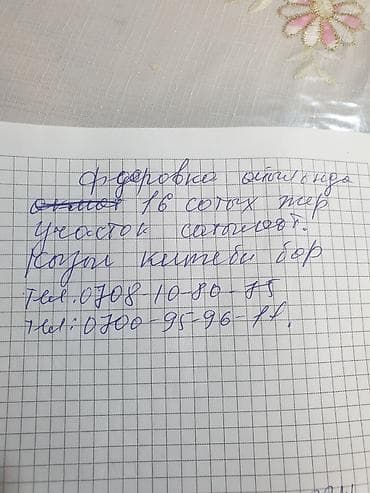 Фдоровка айылында
16 сотых жер
участок сатылат.
Кызыл китеби бар
Тел. 0708-10-80-75
Тел: 0700-95-96-11.